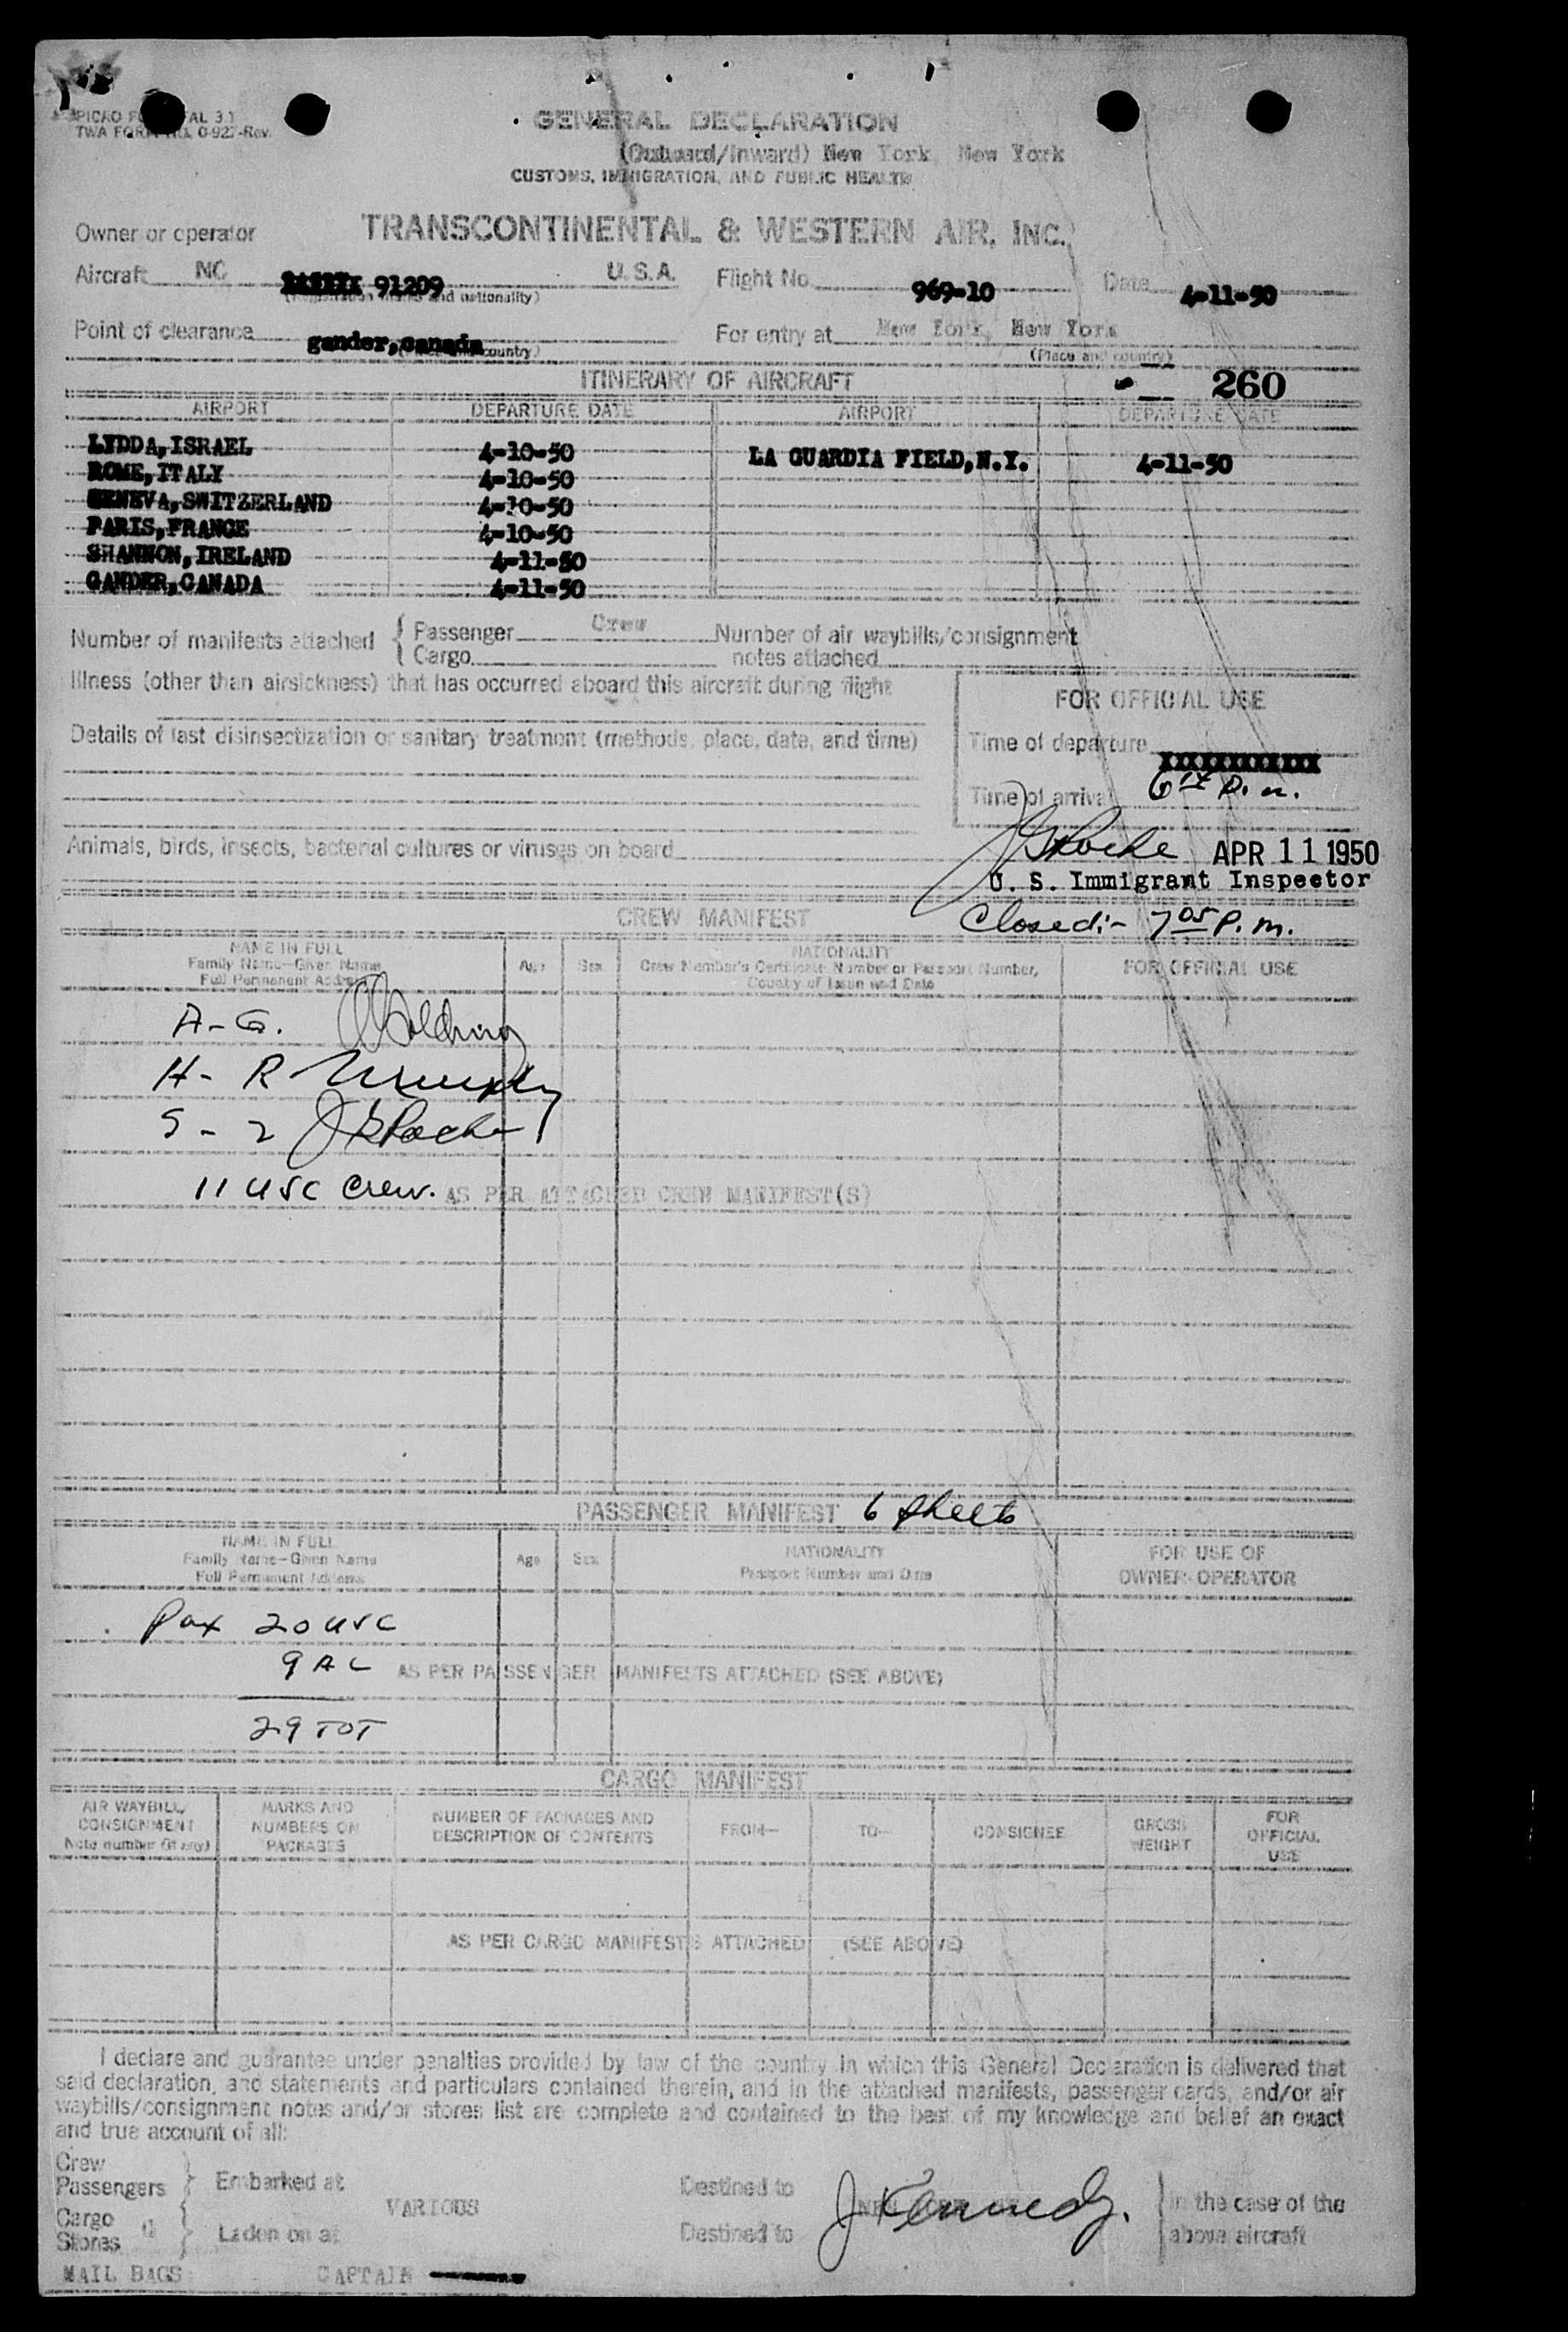 TWA FORM No. 0-927-Rev.
GENERAL DECLARATION
(Outward/Inward) New York, New York
CUSTOMS, IMMIGRATION, AND PUBLIC HEALTH
Owner or operator TRANSCONTINENTAL & WESTERN AIR, INC.
Aircraft NC 91209 U.S.A. Flight No. 969-10 Date 4-11-50
(Registration marks and nationality)
Point of clearance gander,canada For entry at New York, New York
(Place and country)
ITINERARY OF AIRCRAFT 260
AIRPORT DEPARTURE DATE AIRPORT DEPARTURE DATE
LYDDA,ISRAEL 4-10-50 LA GUARDIA FIELD,N.Y. 4-11-50
ROME,ITALY 4-10-50
GENEVA,SWITZERLAND 4-10-50
PARIS,FRANCE 4-10-50
SHANNON,IRELAND 4-11-50
GANDER,CANADA 4-11-50
Number of manifests attached { Passenger Crew Number of air waybills/consignment
Cargo notes attached
Illness (other than airsickness) that has occurred aboard this aircraft during flight
FOR OFFICIAL USE
Details of last disinsectization or sanitary treatment (methods, place, date, and time)
Time of departure XXXXXXXXXXXX
Time of arrival P.m.
Animals, birds, insects, bacterial cultures or viruses on board
APR 11 1950
U. S. Immigrant Inspector
CREW MANIFEST Closed:- 7 05 P.m.
NAME IN FULL
Family Name-Given Name
Full Permanent Address
Age Sex
NATIONALITY
Crew Member's Certificate Number or Passport Number,
Country of Issue and Date
FOR OFFICIAL USE
A-G.
H- R Murphy
S - 2 J Roche
11 USC Crew. AS PER ATTACHED CREW MANIFEST(S)
PASSENGER MANIFEST 6 Sheets
NAME IN FULL
Family Name-Given Name
Full Permanent Address
Age Sex
NATIONALITY
Passport Number and Date
FOR USE OF
OWNER-OPERATOR
Pax 20 USC
9 AL AS PER PASSENGER MANIFESTS ATTACHED (SEE ABOVE)
29 TOT
CARGO MANIFEST
AIR WAYBILL/
CONSIGNMENT
Note number (if any)
MARKS AND
NUMBERS ON
PACKAGES
NUMBER OF PACKAGES AND
DESCRIPTION OF CONTENTS
FROM- TO- CONSIGNEE
GROSS
WEIGHT
FOR
OFFICIAL
USE
AS PER CARGO MANIFESTS ATTACHED (SEE ABOVE)
I declare and guarantee under penalties provided by law of the country in which this General Declaration is delivered that
said declaration, and statements and particulars contained therein, and in the attached manifests, passenger cards, and/or air
waybills/consignment notes and/or stores list are complete and contained to the best of my knowledge and belief an exact
and true account of all:
Crew
Passengers } Embarked at Destined to
VARIOUS J Kennedy. in the case of the
Cargo
Stores } Laden on at Destined to above aircraft
MAIL BAGS CAPTAIN